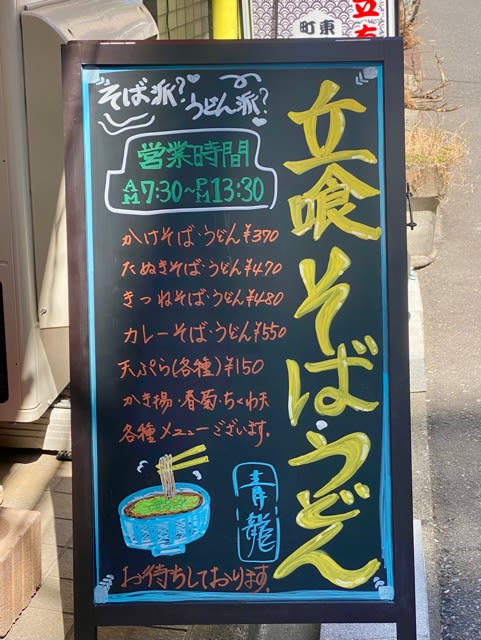 東町
立
そば派?
うどん派?
営業時間
AM7:30~PM13:30
かけそば・うどん¥370
たぬきそば・うどん¥470
きつねそば・うどん¥480
カレーそば・うどん¥550
天ぷら(各種)¥150
かき揚・春菊・ちくわ天
各種メニューございます。
立喰そばうどん
青龍
お待ちしております。